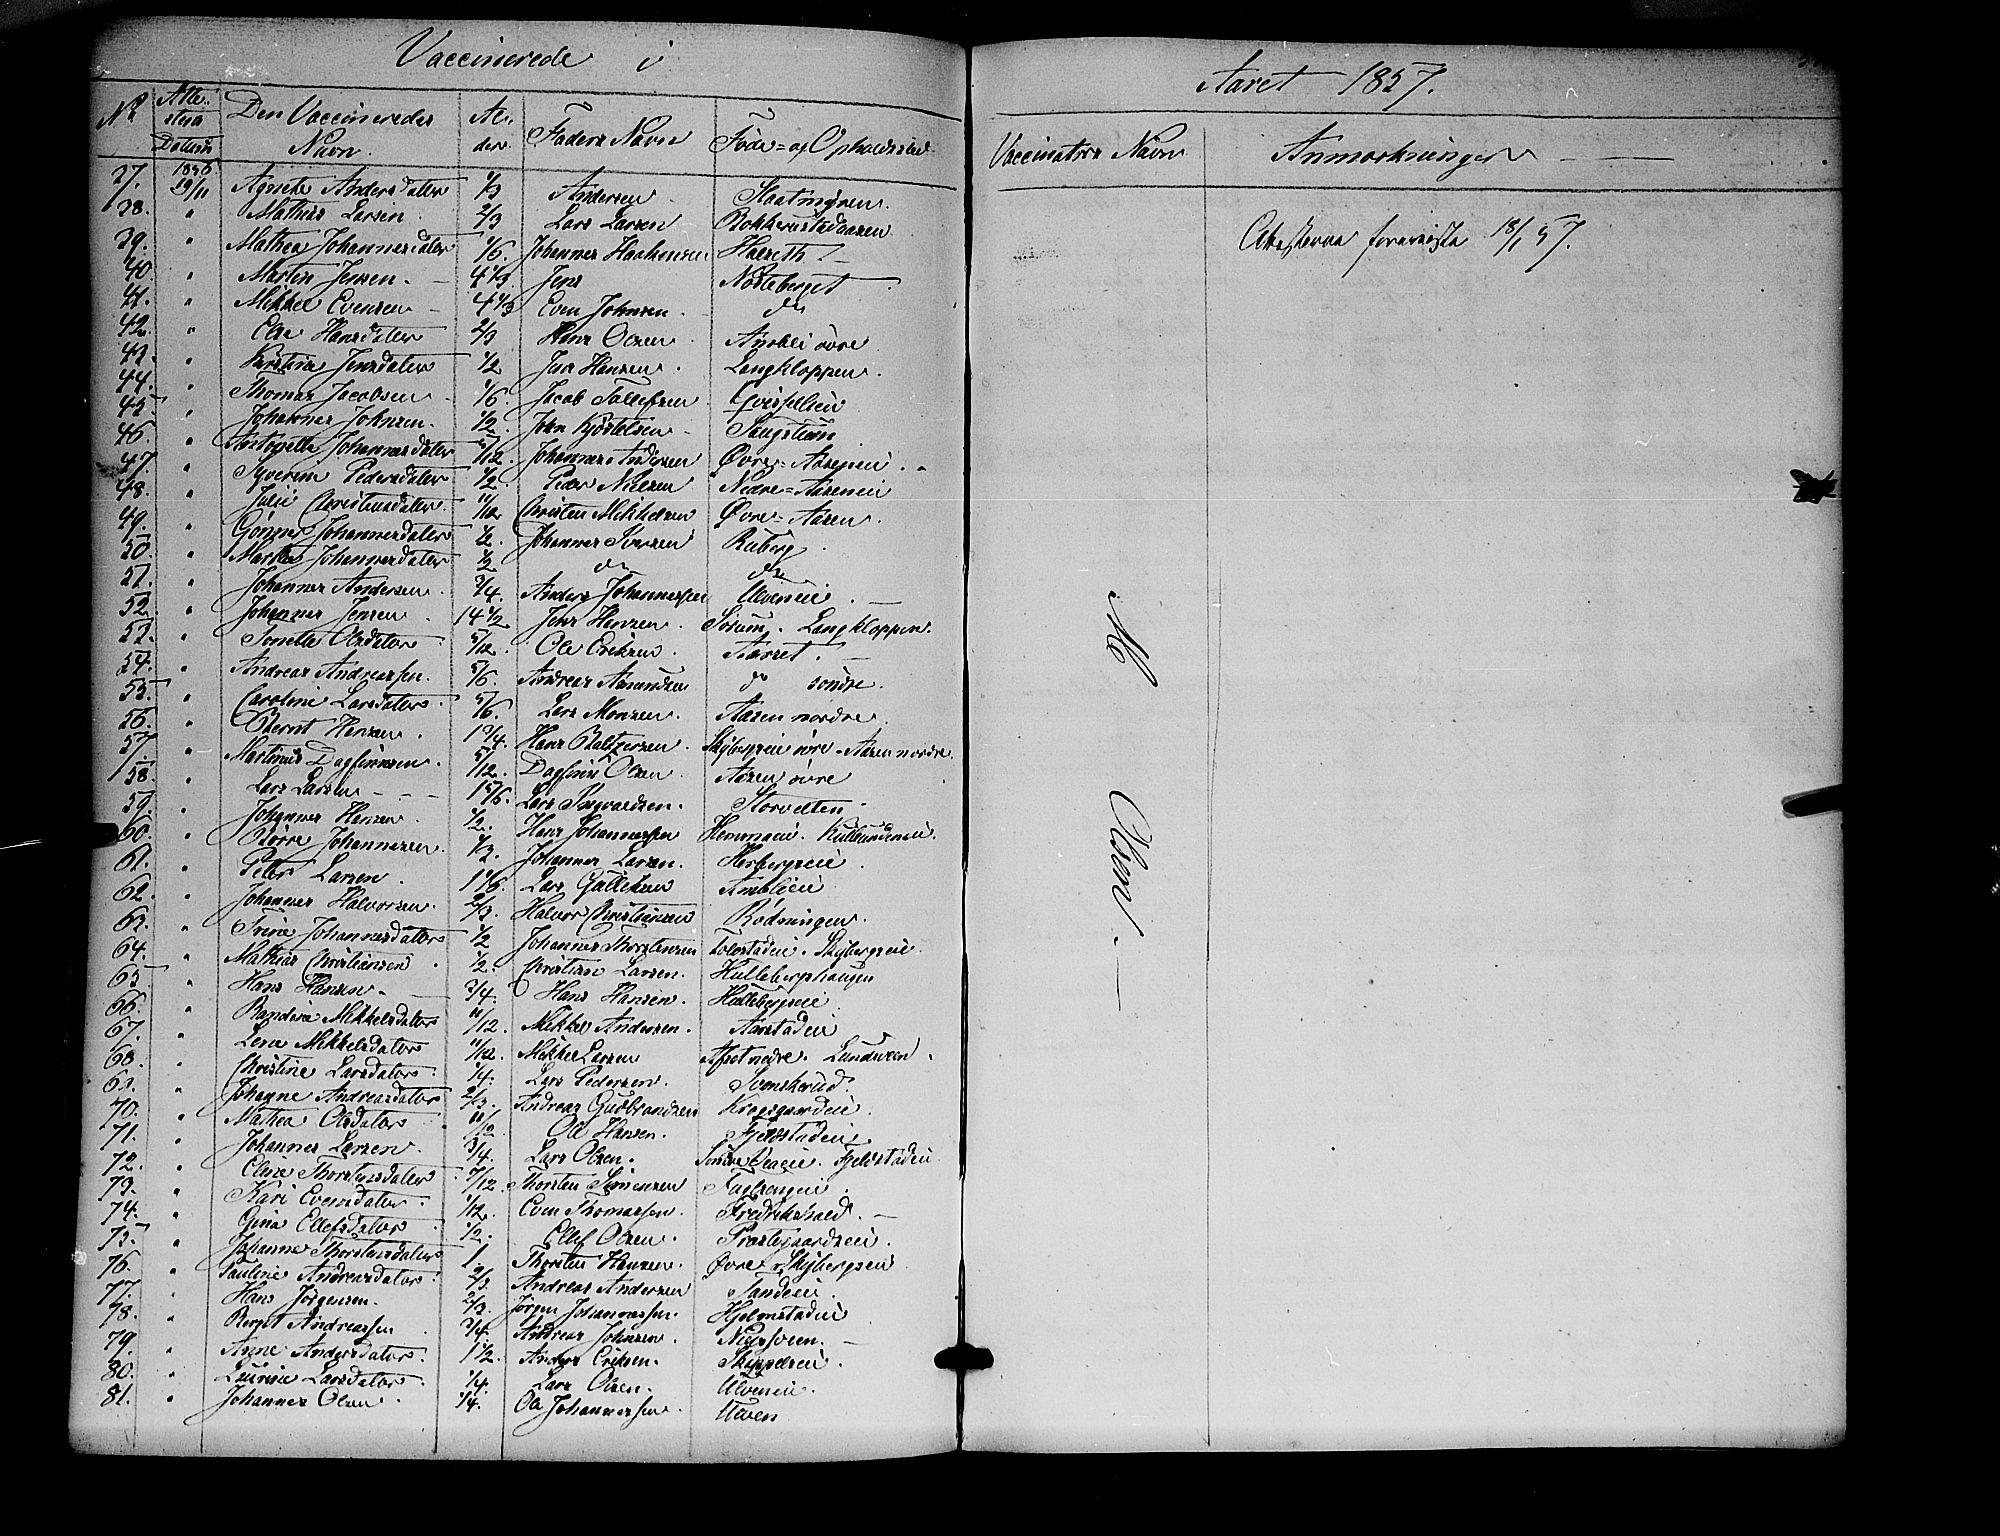 Vaccinerede i
Aaret 1857.
No Atte- stens Datum Den Vaccineredes Navn Al- der Faders Navn Føde- og Opholdssted
Vaccinatørs Navn Anmærkninger
37. 1856 29/11 Agnethe Andersdatter 1/3 Andersen
38. " Mathias Larsen 2/3 Lars Larsen
39. " Mathea Johannesdatter 1/6 Johannes Haakensen
40. " Martin Jensen 4 1/3 Jens Nosleberget
41. " Mikkel Evensen 4 1/3 Even Johnsen do
42. " Else Hansdatter 2/3 Hans Olsen øvre
43. " Kirstine Jensdatter 1/2 Jens Hansen. Langkloppen.
44. " Thomas Jacobsen 1/6 Jacob Tollefsen
45. " Johannes Johnsen. 1/2 John Kjostelsen
46. " Antonette Johannesdatter 5/12 Johannes Andersen Øvre-Aaseneie
47. " Syverine Pedersdatter 1/2 Peder Nielsen Nedre-Aaseneie
48. " Julie Christensdatter. 11/12 Christen Mikkelsen Øvre-Aasen.
49. " Johannesdatter 1/2 Johannes Iversen Ruberg
50. " Marthe Johannesdatter 1/2 do do
51. " Johannes Andersen. 3/4 Anders Johannessen Ulveneie
52. " Johannes Jensen 14 1/2 Jens Hansen. Sørum. Langkloppen.
53. " Olsdatter 5/12 Ole Eriksen Aasset.
54. " Andreas Andreassen. 5/6. Andreas Amundsen do søndre.
55. " Caroline Larsdatter. 5/6. Lars Monsen. Aasen nordre.
56. " Bernt Hansen. 1 3/4. Hans Baltzersen. Skybergeie øvre Aasen nordre
57. " Martinus Dagfinnsen. 5/12. Dagfinn Olsen Aasen øvre
58. " Lars Larsen 1 5/6. Lars Storvelten
59. " Johannes Hansen. 1/2. Hans Johannessen
60. " Børre Johannessen. 1/2. Johannes Larsen.
61. " Peter Larsen. 1 1/6 Lars Gulliksen
62. " Johannes Halvorsen. 2/3. Halvor Christiansen Rødningen.
63. " Trine Johannesdatter 1/2 Johannes Thorstensen Skybergeie
64. " Mathias Christiansen 1/2. Christian Larsen. Hullebergshaugen
65. " Hans Hansen 3/4. Hans Hansen. Hullebergeie
66. " Randine Mikkelsdatter 11/12. Mikkel Andersen.
67. " Lene Mikkelsdatter 11/12 Mikkel Larsen nedre. Lunderen.
68. " Christine Larsdatter. 1/4. Lars Pedersen. Svenskerud.
69. " Johanne Andreasdatter 2/3. Andreas Gudbrandsen Krogsgaardeie.
70. " Mathea Olsdatter 11/12 Ole Hansen. Fjeldstadeie
71. " Johannes Larsen. 3/4. Lars Olsen. Fjeldstadeie
72. " Oline Thorstensdatter 7/12. Thorsten Simensen
73. " Kari Evensdatter 1/12. Even Thomassen Fredrikshald.
74. " Gina Ellefsdatter 1/2. Ellef Olsen. Præstegaardseie.
75. " Johanne Thorstensdatter 1. Thorsten Hansen. Øvre Skybergeie
76. " Pauline Andreasdatter. 2/3. Andreas Andersen Sandeie.
77. " Hans Jørgensen. 2/3. Jørgen Johannessen. Hjelmstadeie
78. " Andreassen 3/4. Andreas Johnsen.
79. " Anne Andersdatter. 1 1/2. Anders Eriksen.
80. " Larsdatter. 1/4. Lars Olsen. Ulveneie.
81. " Johannes Olsen. 1/4. Ole Johannessen. Ulven
Attesterne foreviste 18/1 57.